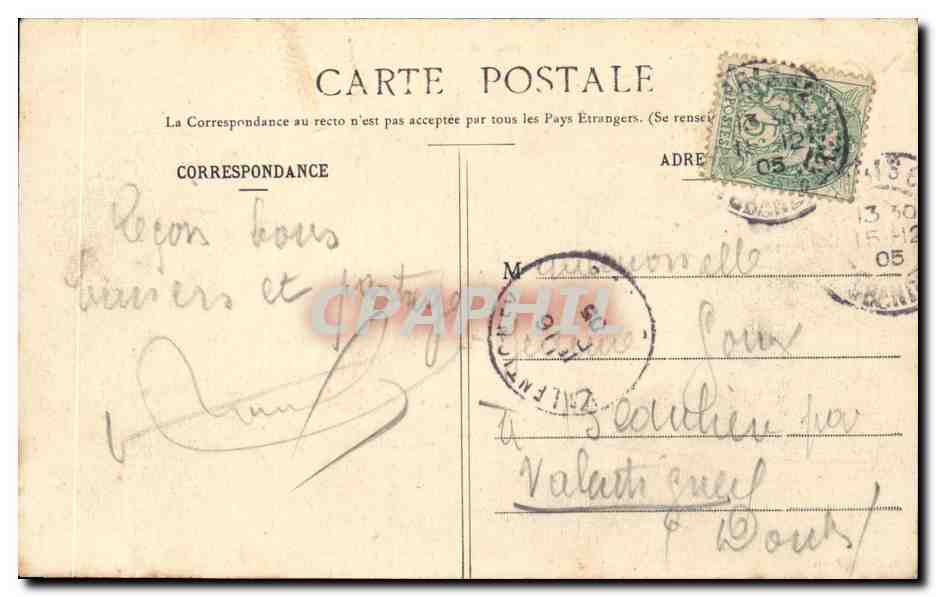 CARTE POSTALE
La Correspondance au recto n'est pas acceptée par tous les Pays Étrangers. (Se rensei
CORRESPONDANCE
ADRE
POSTES
5
13 30
15 -12
05
13 30
15 -12
05
Reçois bons
baisers et
CPAPHIL
Mademoiselle
Goux
à Beaulieu par
Valentigney
Doubs
VALENTIGNEY
DOUBS
05